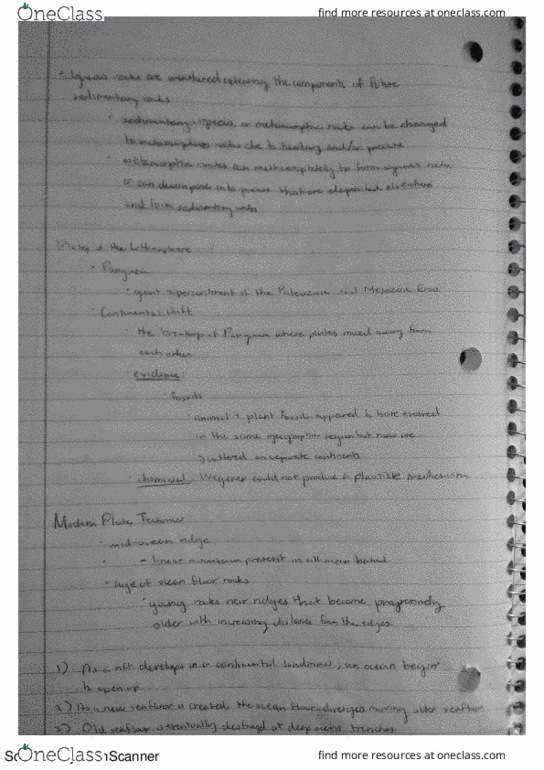 OneClass
find more resources at oneclass.com
• Igneous rocks are weathered releasing the components of future
sedimentary rocks
• sedimentary, igneous, or metamorphic rocks can be changed
to metamorphic rocks due to heating and/or pressure
• metamorphic rocks can melt completely to form igneous rocks
or can decompose into pieces that are deposited elsewhere
and form sedimentary rocks
of the Lithosphere
• Pangaea
• giant supercontinent of the Paleozoic and Mesozoic Eras
• Continental Drift
the breakup of Pangaea where plates moved away from
each other
• evidence:
• fossils
• animal + plant fossils appeared to have evolved
in the same geographic region but now are
scattered on separate continents
• dismissal: Wegener could not produce a plausible mechanism
Modern Plate Tectonics
• mid-ocean ridge
– linear mountain present in all ocean basins
• age of ocean floor rocks
• young rocks near ridges that become progressively
older with increasing distance from the edges
1) As a rift develops in a continental landmass, an ocean begins
to open up
2) As a new seafloor is created, the ocean floor diverges moving older seafloor
3) Old seafloor is eventually destroyed at deep ocean trenches
OneClass
Scanner
find more resources at oneclass.com